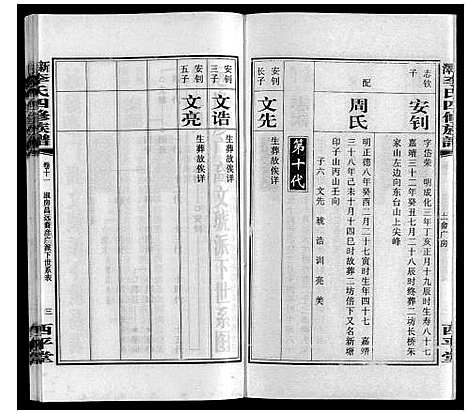 李氏四修族譜
志钦
子
安钊
字岱荣 明成化三年丁亥正月十九辰时生寿八十七
嘉靖三十二年癸丑七月二十八辰时葬二坊长桥朱
家山左边向东台山上尖峰
配
周氏
明正德八年癸酉二月二十七寅时生年四十七 嘉靖
三十八年己未十月十四巳时故葬二坊岱下又名新塘
印子山丙山壬向
子六 文先 琥 诰 训 亮 美
第十代
安钊
长子
文先
生葬故俟详
西平堂
安钊
三子
文诰
生葬故俟详
安钊
五子
文亮
生葬故俟详
李氏四修族譜
卷十一
派下世系表
三
西平堂